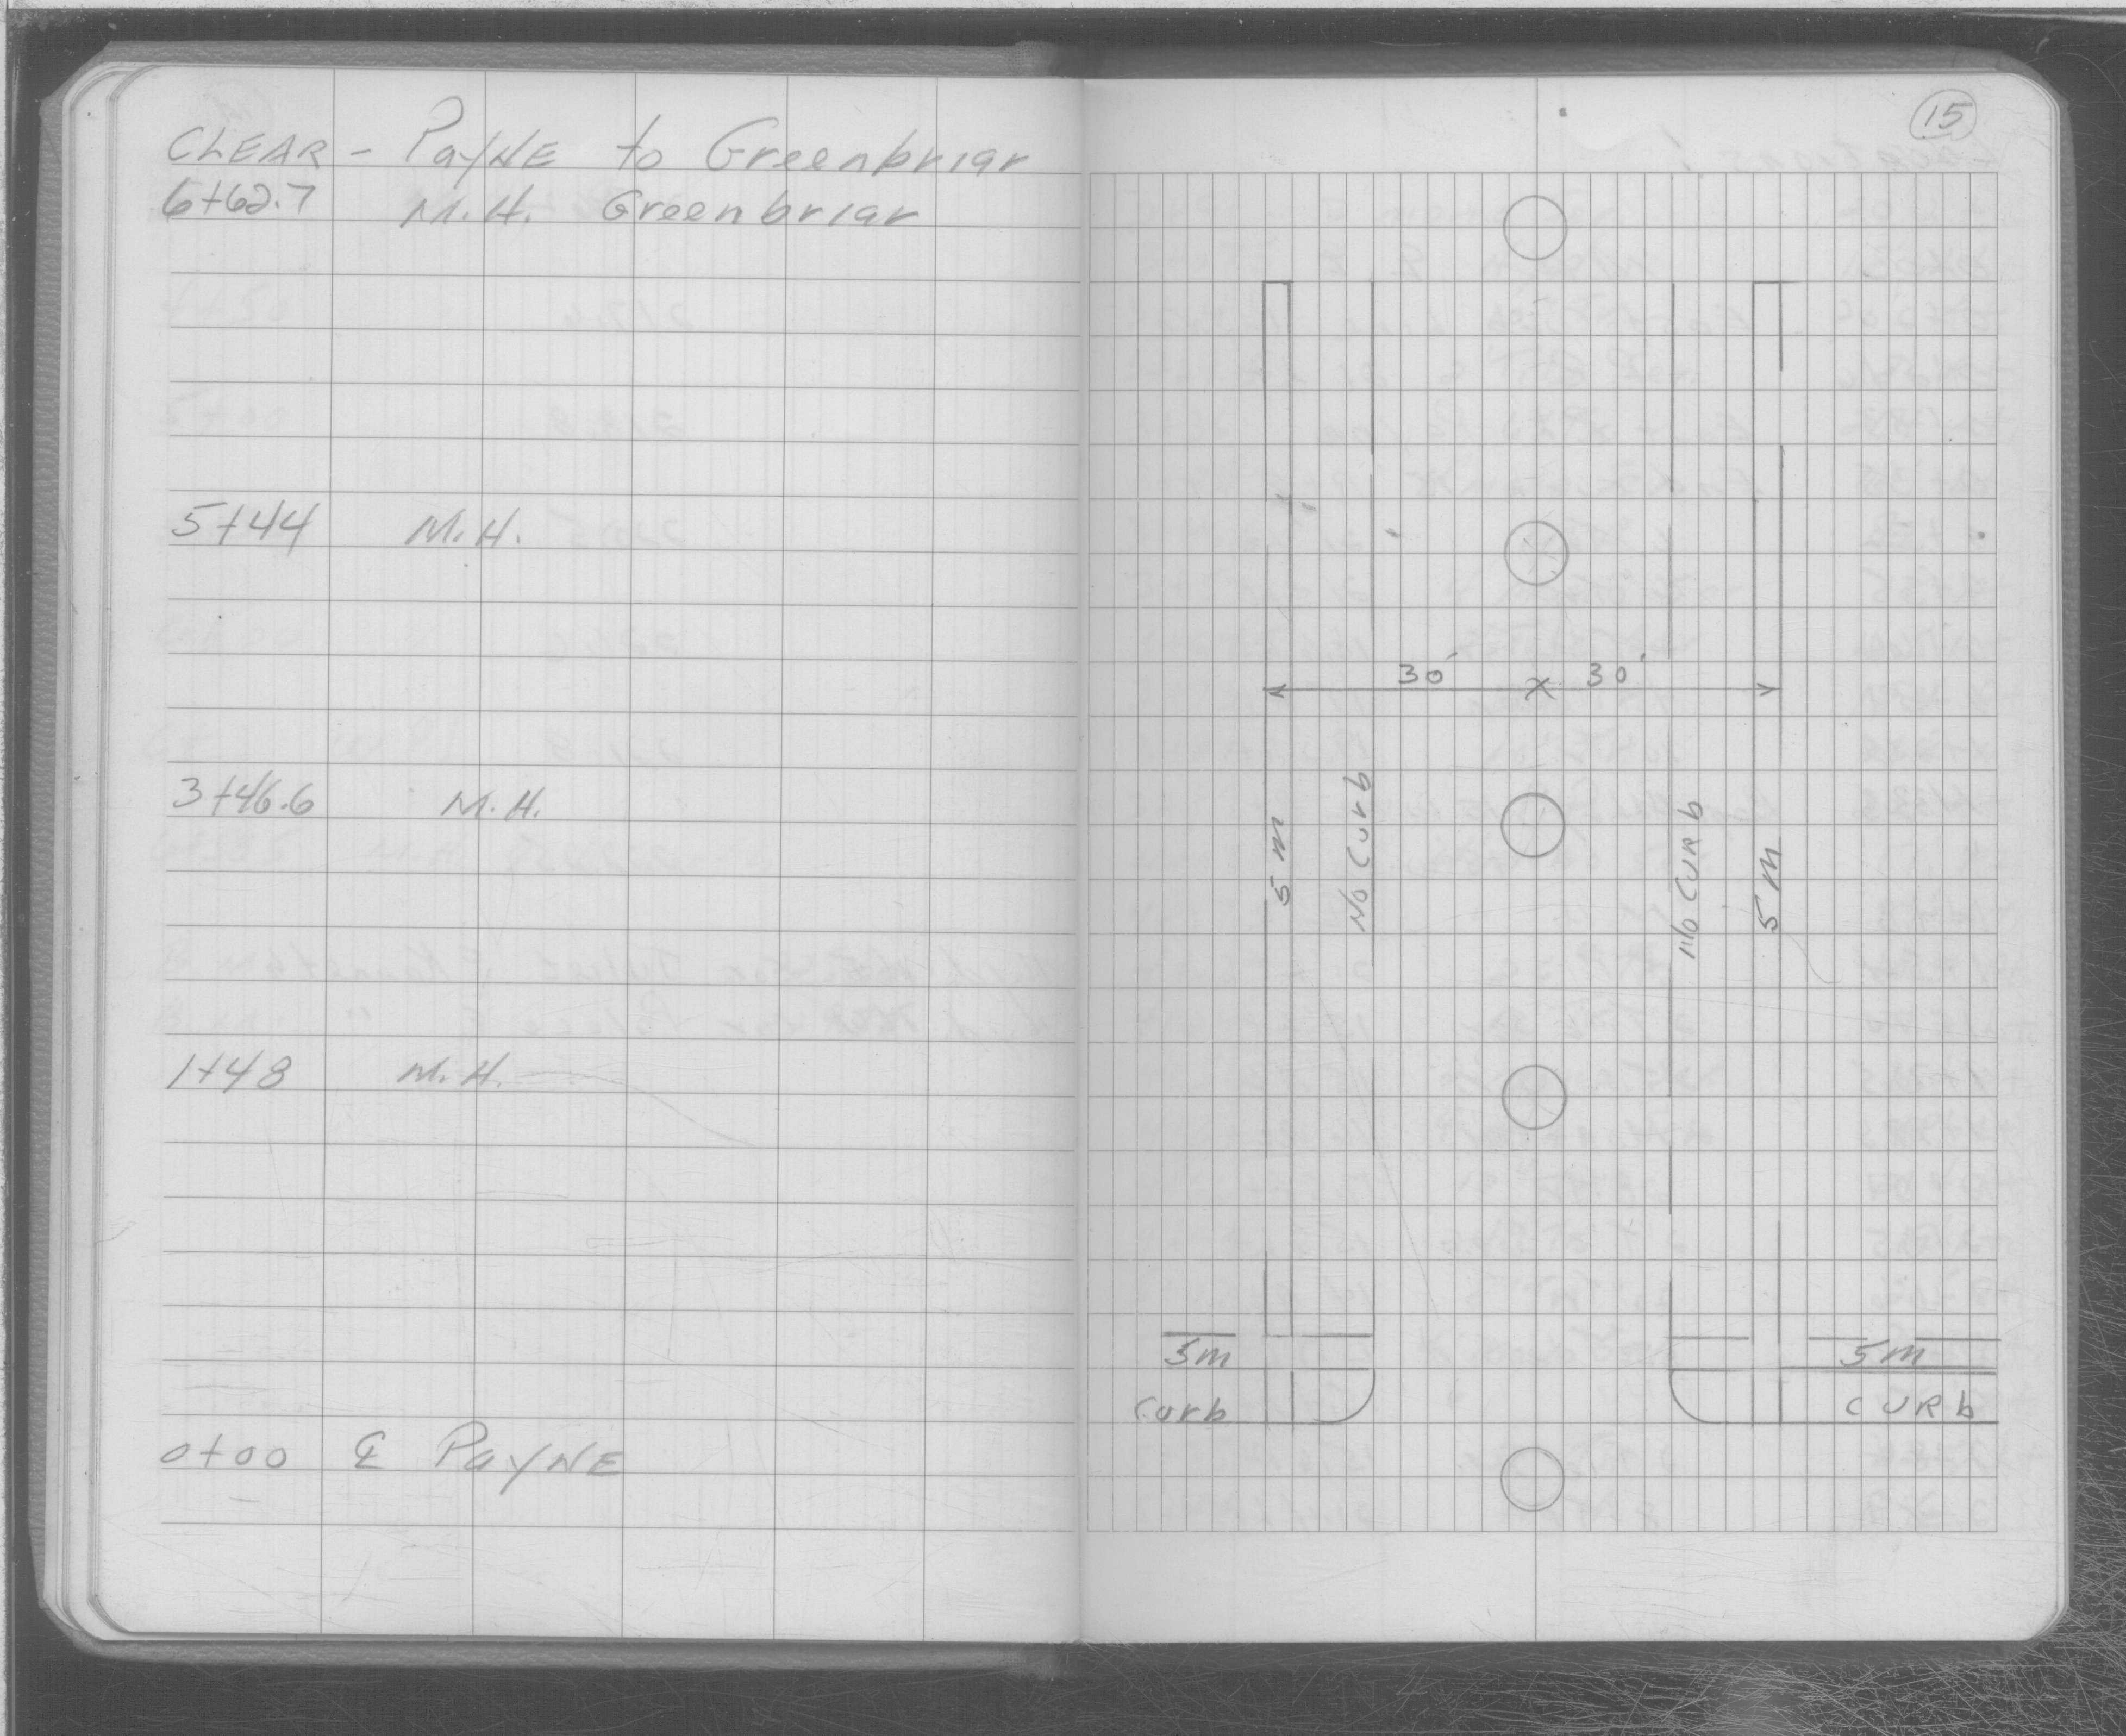 CLEAR - PAYNE to Greenbriar
6+62.7 M.H. Greenbriar
5+44 M.H.
3+46.6 M.H.
1+48 M.H.
0+00 ℄ PAYNE
15
30' 30'
5 m
No Curb
No CURb
5 m
5m
5m
Curb
CURb